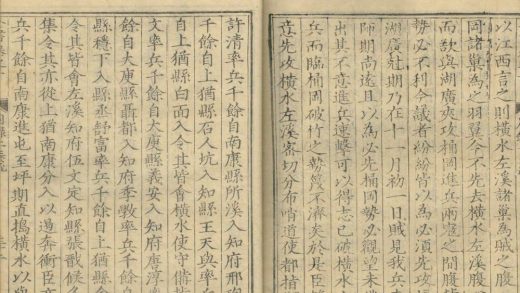 以江西言之則橫水左溪諸巢為賊之腹
岡諸巢為之羽翼今不先去橫水左溪腹
而欲與湖廣夾攻桶岡進兵兩寇之間腹
勢必不利今議者紛紛皆以為必須先攻
湖廣尅期乃在十一月初一日賊見我兵
師期尚遠且以為必先桶岡勢必觀望未
出其不意進兵速擊可以得志已破橫水
兵而臨桶岡破竹之勢蔑不濟矣於是臣
意先攻橫水左溪密切分布哨道使都指
許清率兵千餘自南康縣所溪入知府邢
千餘自上猶縣石人坑入知縣王天與率
自上猶縣白面入令其皆會橫水使守備
文率兵千餘自大庾縣義安入知府唐淳
餘自大庾縣聶都入知府季斆率兵千餘
縣穩下入縣丞舒富率兵千餘自上猶縣金
令其皆會左溪知府伍文定知縣張戩候
集令其亦從上猶南康分入以遏奔衝臣
兵千餘自南康進屯至坪期直搗橫水以與